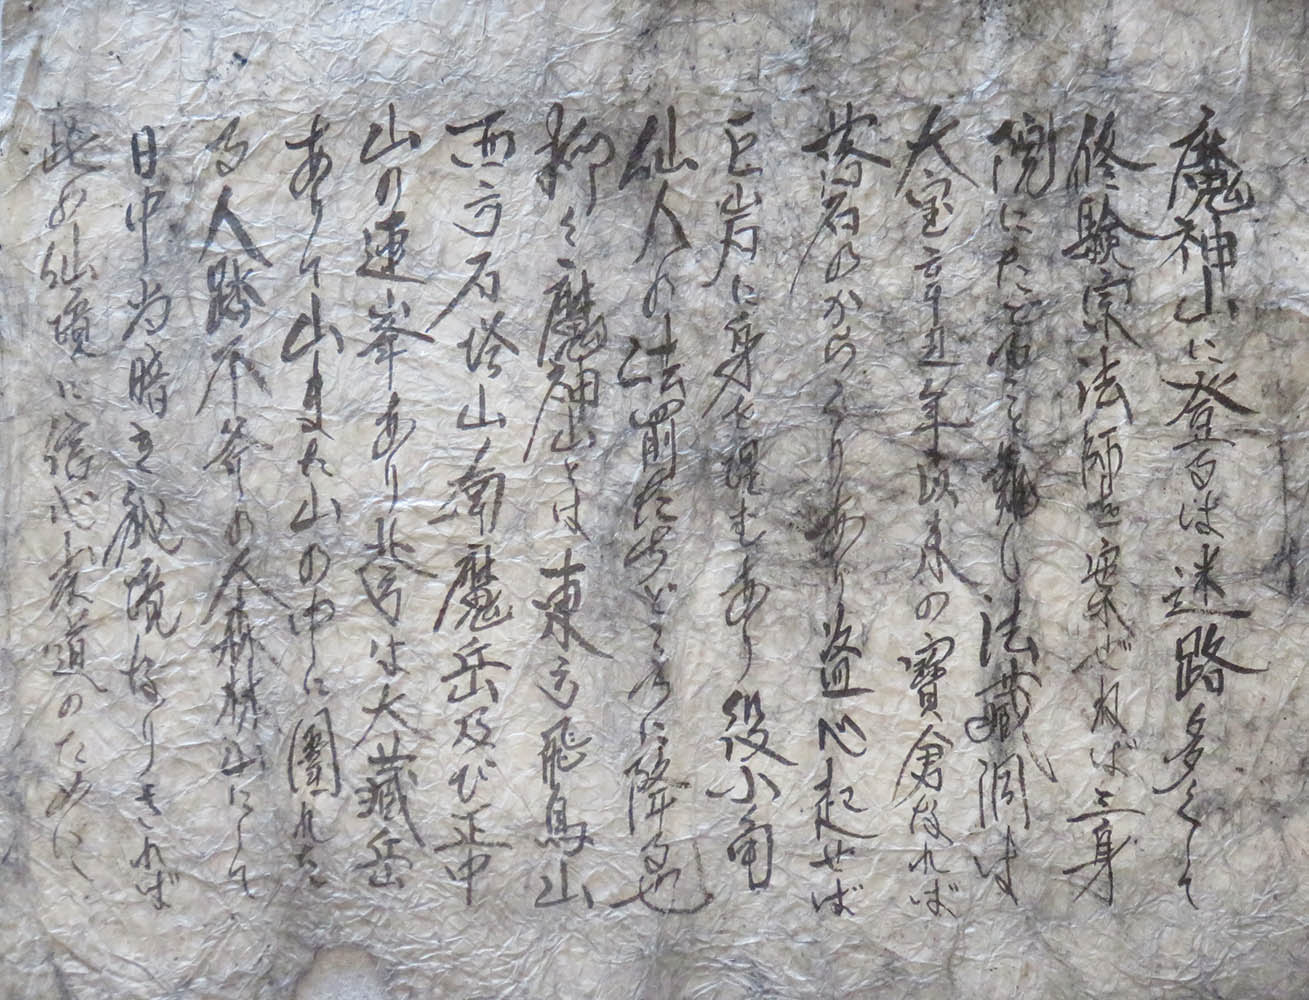 魔神山に登るは迷路多くして
修験宗法師の案ぜねば三身
院にたどること難し法藏洞は
大宝辛丑年以来の寶倉なれば
落岩のからくりあり盗心起せば
巨岩に身を埋むあり役小角
仙人の法罰たちどころに降る也
抑々魔神山とは東方飛鳥山
西方石塔山南魔岳及び正中
山の連峯あり北方は大藏岳
ありて山また山の中に圍れた
る人跡不斧の人森林山にして
日中尚暗き秘境なりされば
此の仙境に信心求道のために